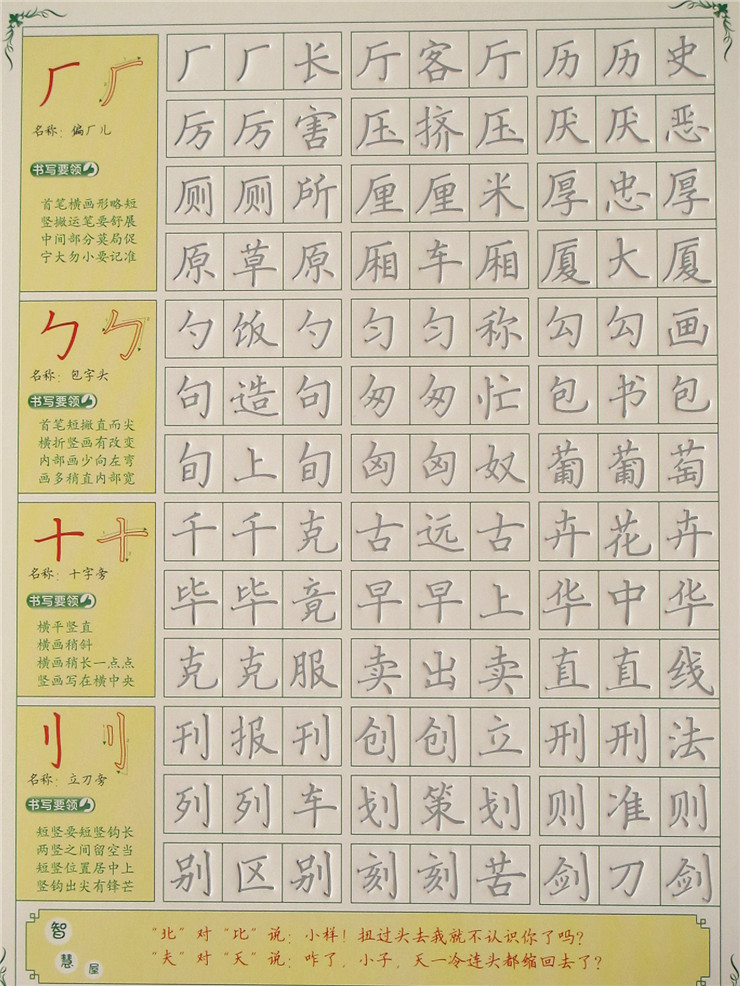 厂厂长 厅客厅 历历史
名称：偏厂儿
厉厉害 压挤压 厌厌恶
书写要领
首笔横画形略短
竖撇运笔要舒展
中间部分莫局促
宁大勿小要记准
厕厕所 厘厘米 厚忠厚
原草原 厢车厢 厦大厦
勺饭勺 匀匀称 勾勾画
名称：包字头
书写要领
首笔短撇直而尖
横折竖画有改变
内部画少向左弯
画多稍直内部宽
句造句 匆匆忙 包书包
旬上旬 匈匈奴 葡葡萄
千千克 古远古 卉花卉
名称：十字旁
书写要领
横平竖直
横画稍斜
横画稍长一点点
竖画写在横中央
毕毕竟 早早上 华中华
克克服 卖出卖 直直线
刊报刊 创创立 刑刑法
名称：立刀旁
书写要领
短竖要短竖钩长
两竖之间留空当
短竖位置居中上
竖钩出尖有锋芒
列列车 划策划 则准则
别区别 刻刻苦 剑刀剑
智慧屋
“北”对“比”说：小样！扭过头去我就不认识你了吗？
“夫”对“天”说：咋了，小子，天一冷连头都缩回去了？